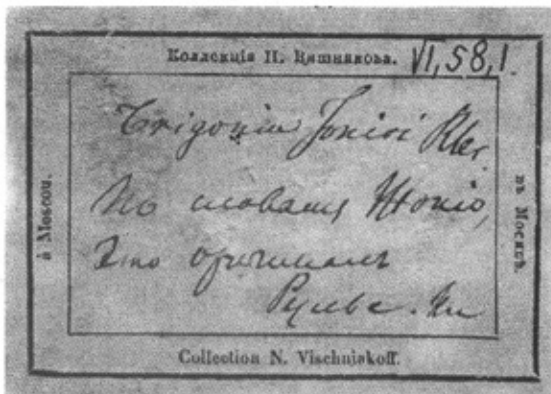 Коллекція Н. Вишнякова.
VI,58,1.
Trigonia Jonioi
По словамъ Жоніо,
это оригиналъ
Рулье.
à Moscou.
въ Москвѣ.
Collection N. Vischniakoff.